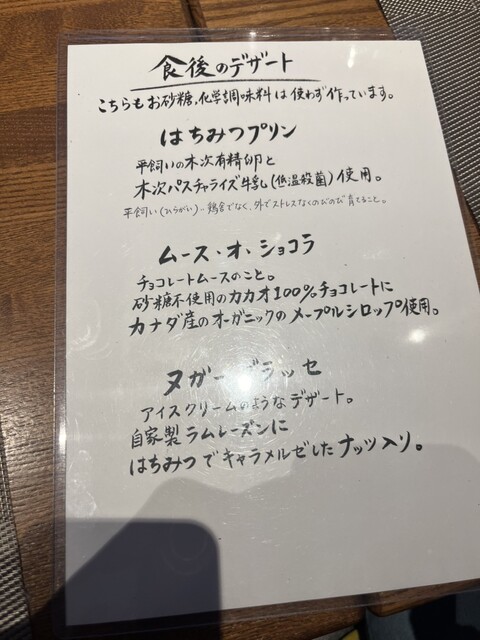 食後のデザート
こちらもお砂糖、化学調味料は使わず作っています。
はちみつプリン
平飼いの木次有精卵と
木次パスチャライズ牛乳(低温殺菌)使用。
平飼い(ひらがい)‥鶏舎でなく、外でストレスなくのびのび育てること。
ムース・オ・ショコラ
チョコレートムースのこと。
砂糖不使用のカカオ100%チョコレートに
カナダ産のオーガニックのメープルシロップ使用。
ヌガーグラッセ
アイスクリームのようなデザート。
自家製ラムレーズンに
はちみつでキャラメルゼしたナッツ入り。